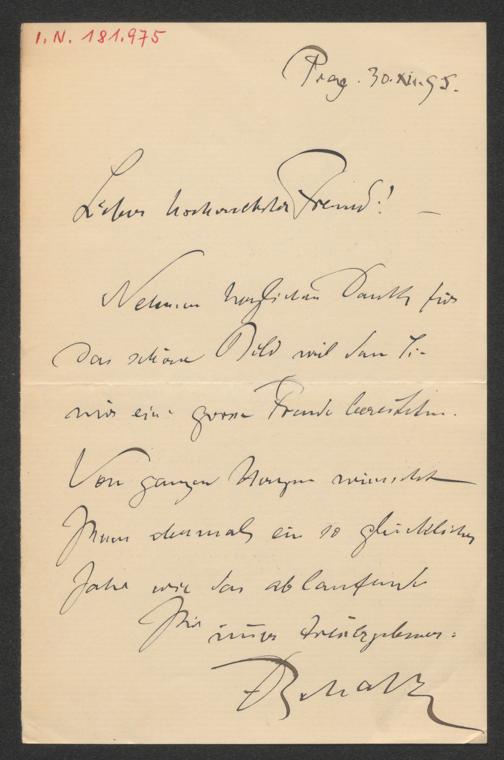 I. N. 181.975
Prag. 30.XII.95.
Lieber hochverehrter Freund! –
Nehmen herzlichen Dank für
das schöne Bild mit dem Si-
mir eine grosse Freude bereiteten.
Von ganzem Herzen wünscht
Ihnen abermals ein so glückliches
Jahr wie das ablaufende
Ihr immer